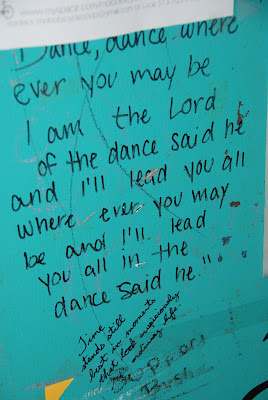 Dance, dance where
ever you may be
I am the Lord
of the dance said he
and I'll lead you all
where ever you may
be and I'll lead
you all in the
dance said he"
Time
stands still
best in moments
that look suspiciously
ordinary life
Support